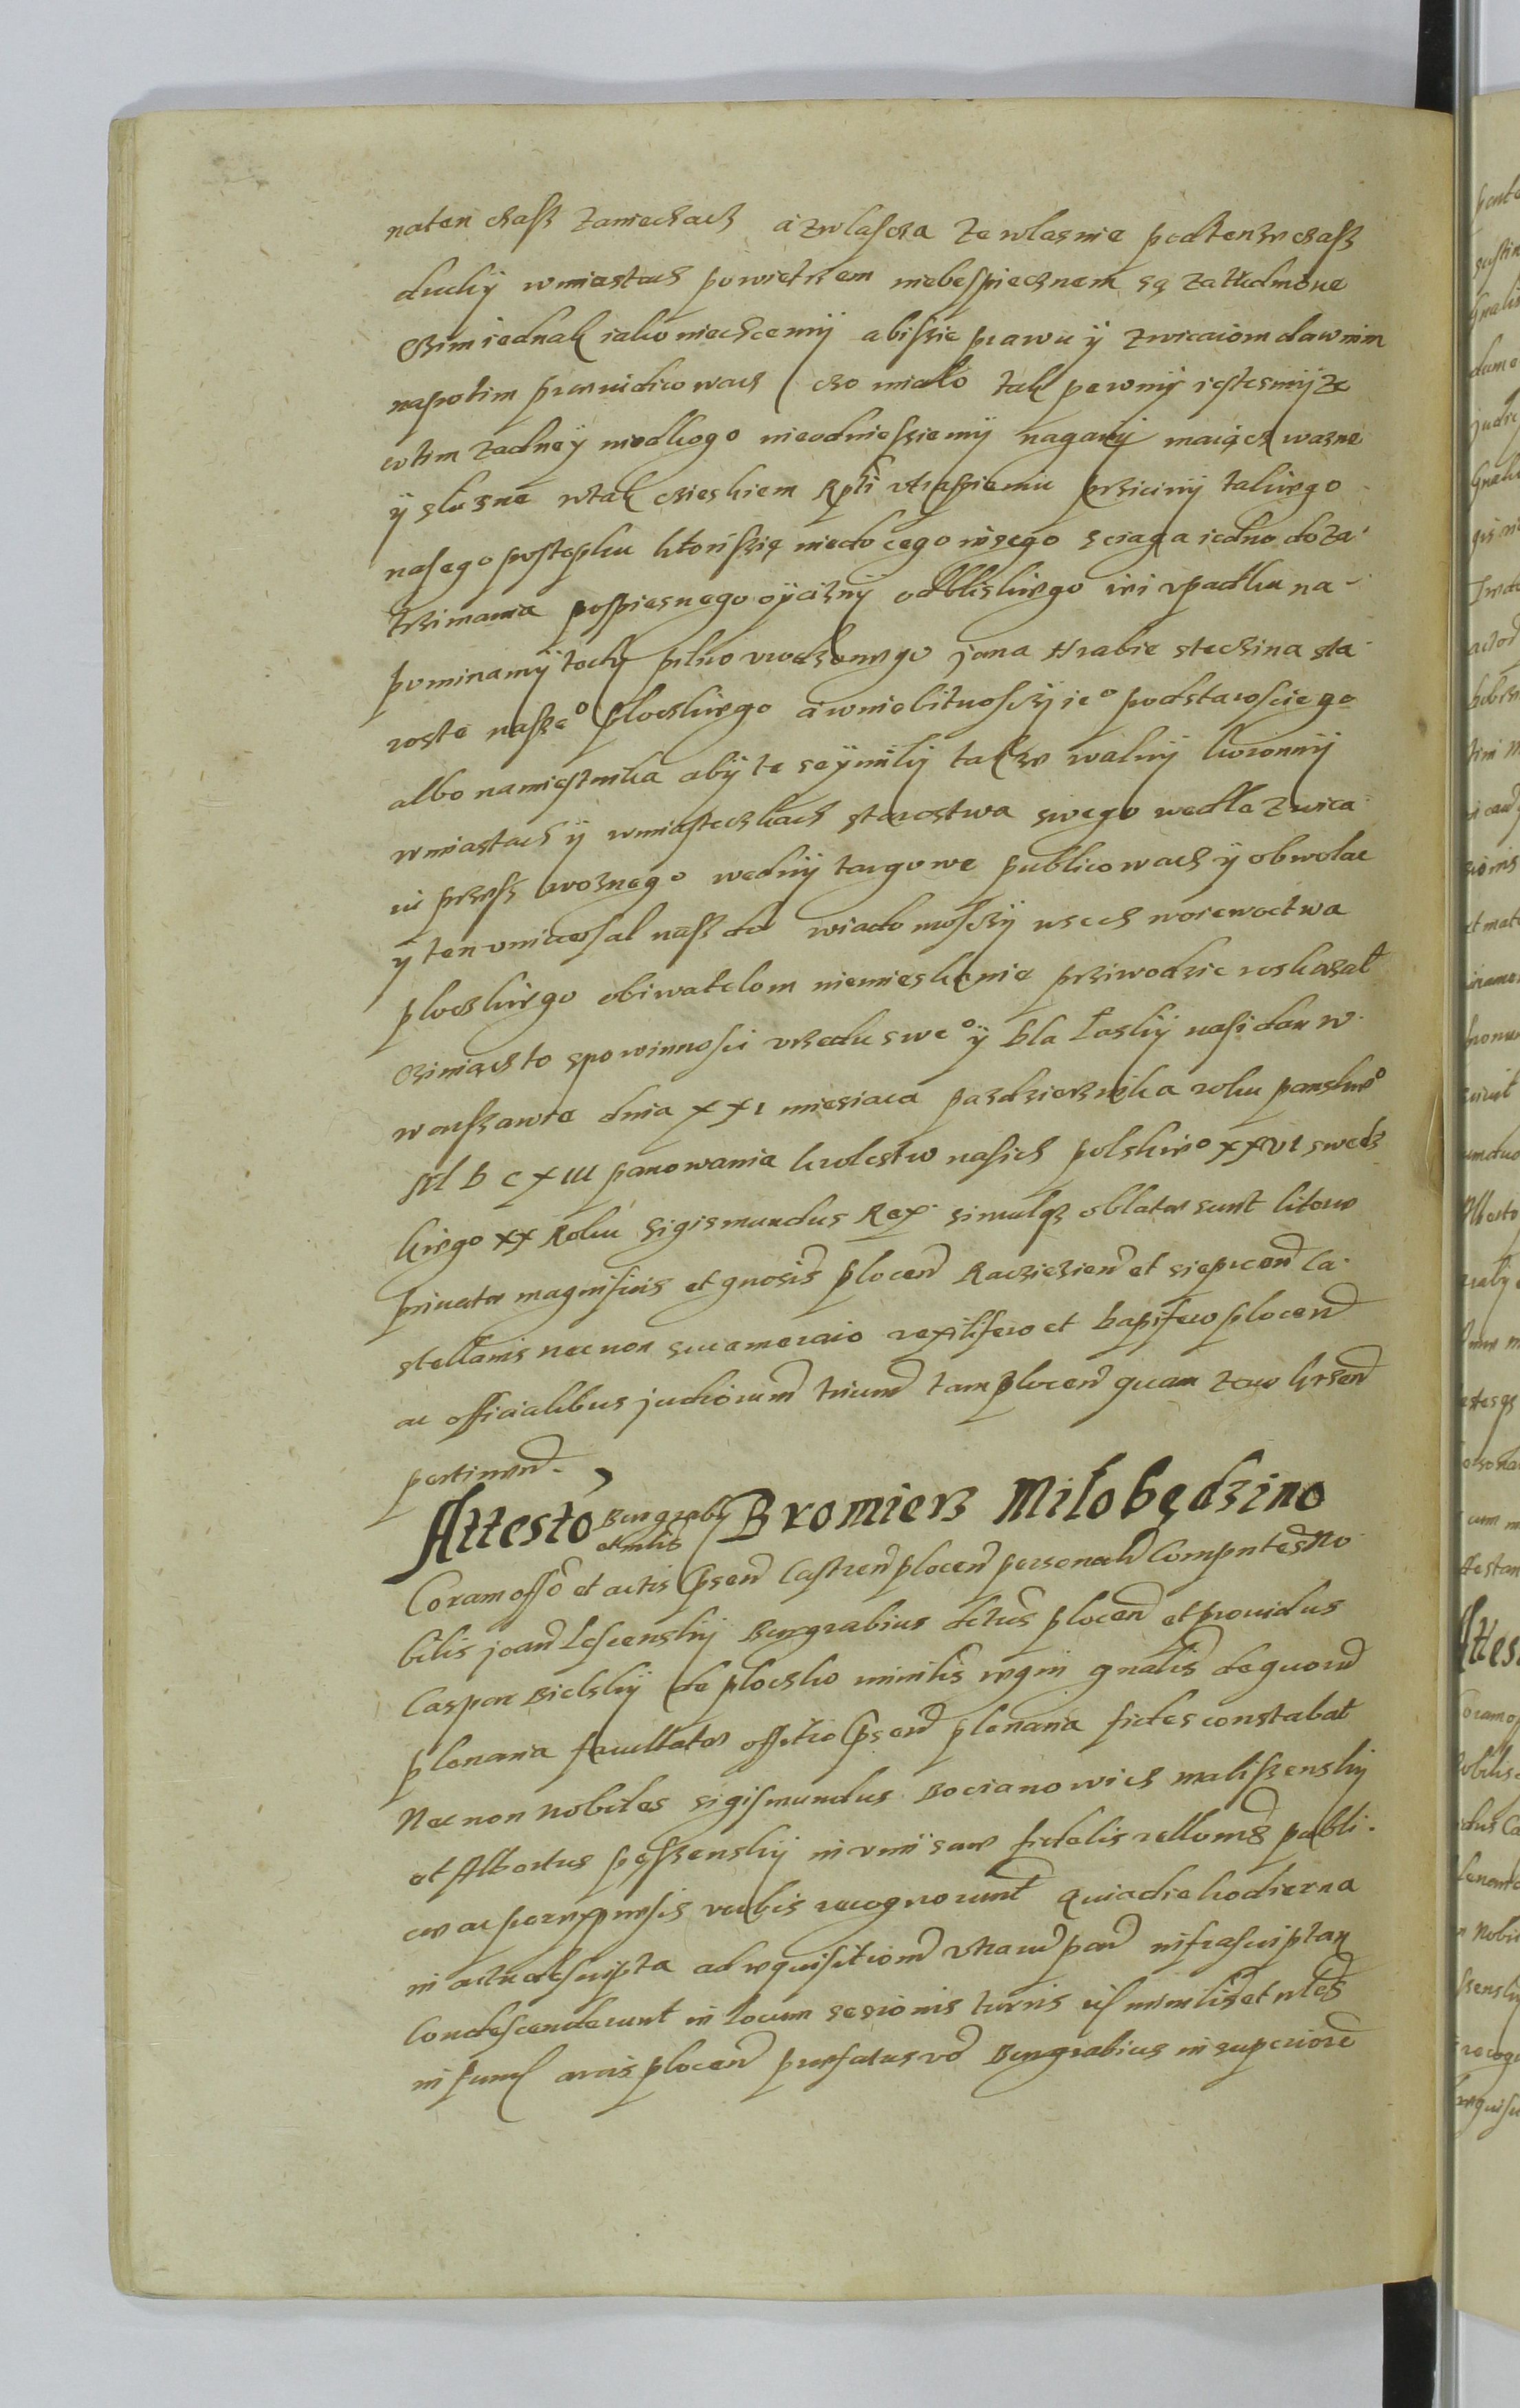 naten czasz zaniechach a zwlascza ze wlasnie podtenze czasz
drudzy wmiastach powietrzem niebespiecznem są zatrudnione
czim iednak iako niechcemy abiszie prawu ÿ zwicaiom dawnim
napotim praeiudicowach czo mialo tak pewni iestesmy ze
wtim zadneÿ niodkogo nieodniessiemy nagany maiącz wazne
ÿ sluszne wtak czieskiem Rpti utrapieniu prziciny takiego
nasego postepku ktoriszię niedo cego insego sciaga iedno do za
trzimania pospiesnego oÿcizny odbliskiego iei upadku na-
pominamy tedy pilno urodzonego jana Hrabie steczina sta
roste nasze° plockiego a wniebitnosczÿ ie° podstarosciego
albo namiestnika abÿ te seÿmiky takze walny koronny
wmiastach ÿ wmiasteczkach starostwa swego wedle zwica
iu przesz woznego wedny targowe publicowach ÿ obwolac
ÿ ten uniwersal nasz do wiadomosczÿ wsech woiewoctwa
ploczkiego obiwatelom niemieszkanie prziwodzic roskazal
cziniącz to spowinnosci urzedu swe° ÿ dla Laskÿ nasi dan w
warszawie dnia XXI miesiaca pazdziernika roku panskie°
M D C XIII panowania krolestw nasich polskie° XXVI swedz
kiego XX Roku Sigismundus Rex. simulqz oblatae sunt literae
privatae magnificis et gnosis plocen Racziezien et sieprcen ca-
stellanis necnon succamerario vexilifero et dapifero plocen
ac officialibus judiciorum trium tam plocen quam zawkrzen
pertinen.
Attesto Burgrabÿ et mlis Bromierz Milobędzino
Coram offo et actis psen Castren plocen personalr Comparntes No
bilis joan Lescenskÿ Burgrabius castren plocen et providus
Caspar Bielskÿ de ploczko ministris regni gnalis de quorum
plenaria facultate offitio psen plenaria fides constabat
Necnon nobiles sigismundus Bocianowich maliszenskÿ
et Albertus pęszenskÿ in vim suae fidelis relloms publi-
cae ac per expressis verbis recognorunt quia die hodierna
in actu descripta ad requisitionem utrarum par infrascriptar
Condescenderunt in locum sesionis turris
in fund arcis plocen praefatus vo Burgrabius in superiore